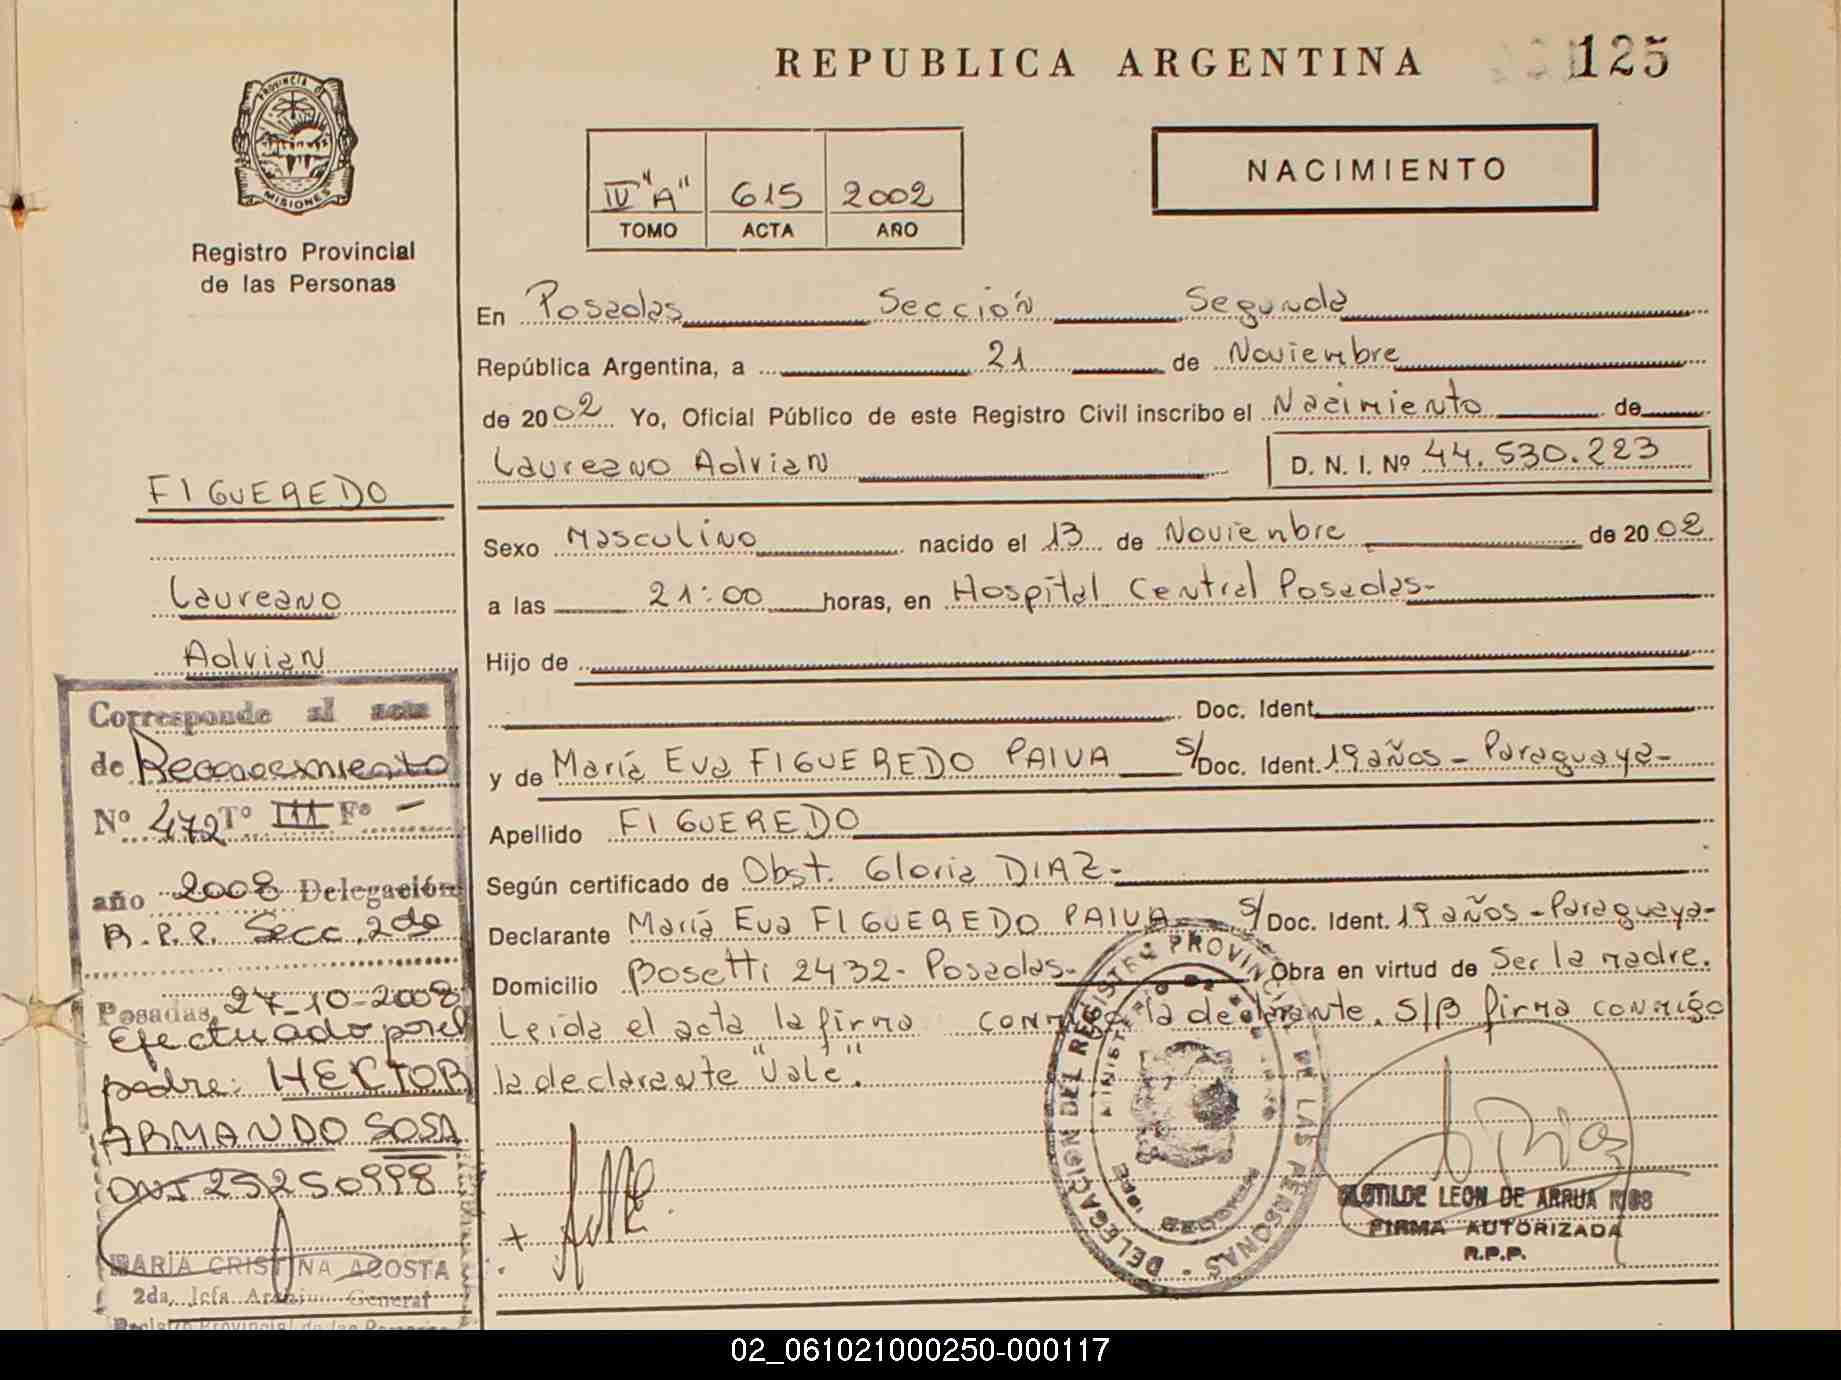 REPUBLICA ARGENTINA
125
PROVINCIA DE
MISIONES
Registro Provincial
de las Personas
IV "A" 615 2002
TOMO ACTA AÑO
NACIMIENTO
En Posadas Sección Segunda
República Argentina, a 21 de Noviembre
de 2002 Yo, Oficial Público de este Registro Civil inscribo el Nacimiento de
Laureano Adrian D. N. I. Nº 44.530.223
Sexo Masculino nacido el 13 de Noviembre de 2002
a las 21:00 horas, en Hospital Central Posadas-
Hijo de
Doc. Ident.
y de María Eva FIGUEREDO PAIVA s/Doc. Ident. 19 años - Paraguaya-
Apellido FIGUEREDO
Según certificado de Obst. Gloria DIAZ-
Declarante María Eva FIGUEREDO PAIVA s/Doc. Ident. 19 años - Paraguaya-
Domicilio Bosetti 2432- Posadas- Obra en virtud de Ser la madre.
Leída el acta la firma conmigo la declarante. S/B firma conmigo
la declarante "Vale".
FIGUEREDO
Laureano
Adrian
Corresponde al acta
de Reconocimiento
Nº 472 Tº III Fº -
año 2008 Delegación
R.P.P. Secc. 2da
Posadas, 27-10-2008
Efectuado por el
padre: HECTOR
ARMANDO SOSA
DNI 25250998
MARIA CRISTINA ACOSTA
2da. Jefa Archivo General
Registro Provincial de las Personas
DELEGACION DEL REGISTRO PROVINCIAL DE LAS PERSONAS
CLOTILDE LEON DE ARRUA
FIRMA AUTORIZADA
R.P.P.
02_061021000250-000117